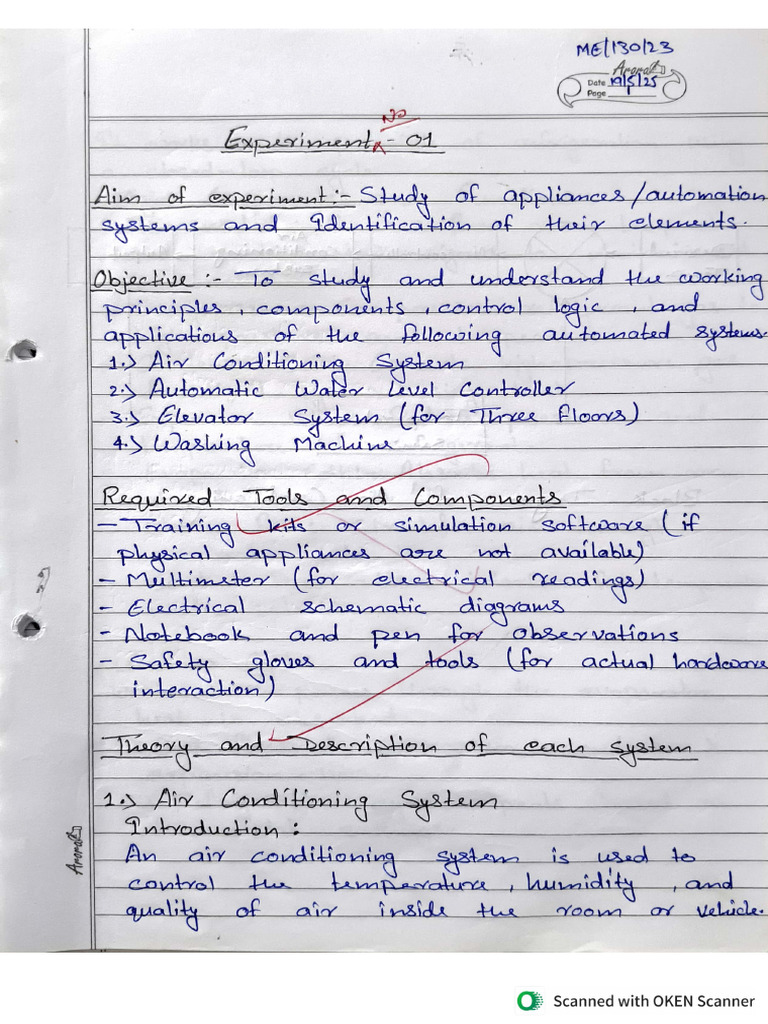 ME/130/23
Arora
Date 19/5/25
Page
No
Experiment - 01
Aim of experiment:- Study of appliances/automation
systems and Identification of their elements.
Objective :- To study and understand the working
principles, components, control logic, and
applications of the following automated systems.
1.) Air Conditioning System
2.) Automatic Water Level Controller
3.) Elevator System (for Three floors)
4.) Washing Machine
Required Tools and Components
- Training kits or simulation software (if
physical appliances are not available)
- Multimeter (for electrical readings)
- Electrical schematic diagrams
- Notebook and pen for observations
- Safety gloves and tools (for actual hardware
interaction)
Theory and Description of each system
1.) Air Conditioning System
Introduction :
An air conditioning system is used to
control the temperature, humidity, and
quality of air inside the room or vehicle.
Arora
Scanned with OKEN Scanner